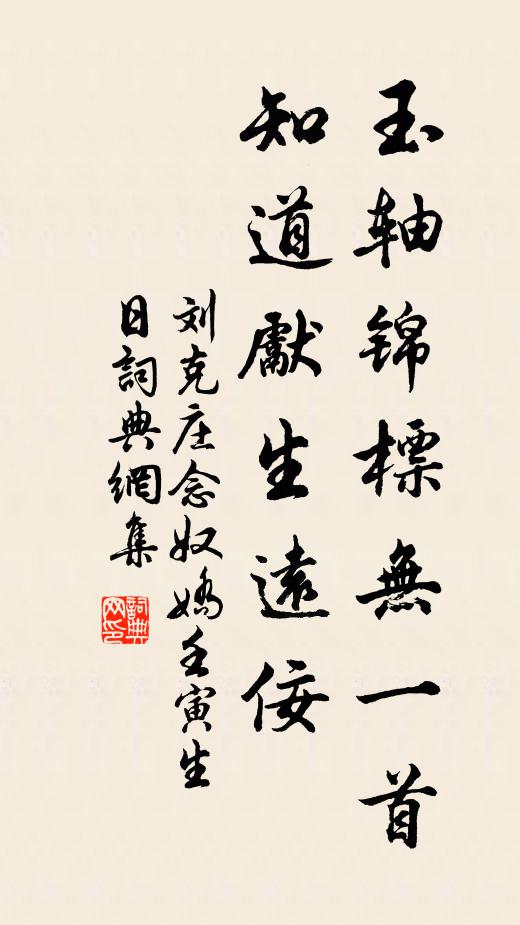 玉軸锦標無一首
知道獻生遠佞
刘克庄念奴嬌壬寅生
日詞典網集
詞典网印